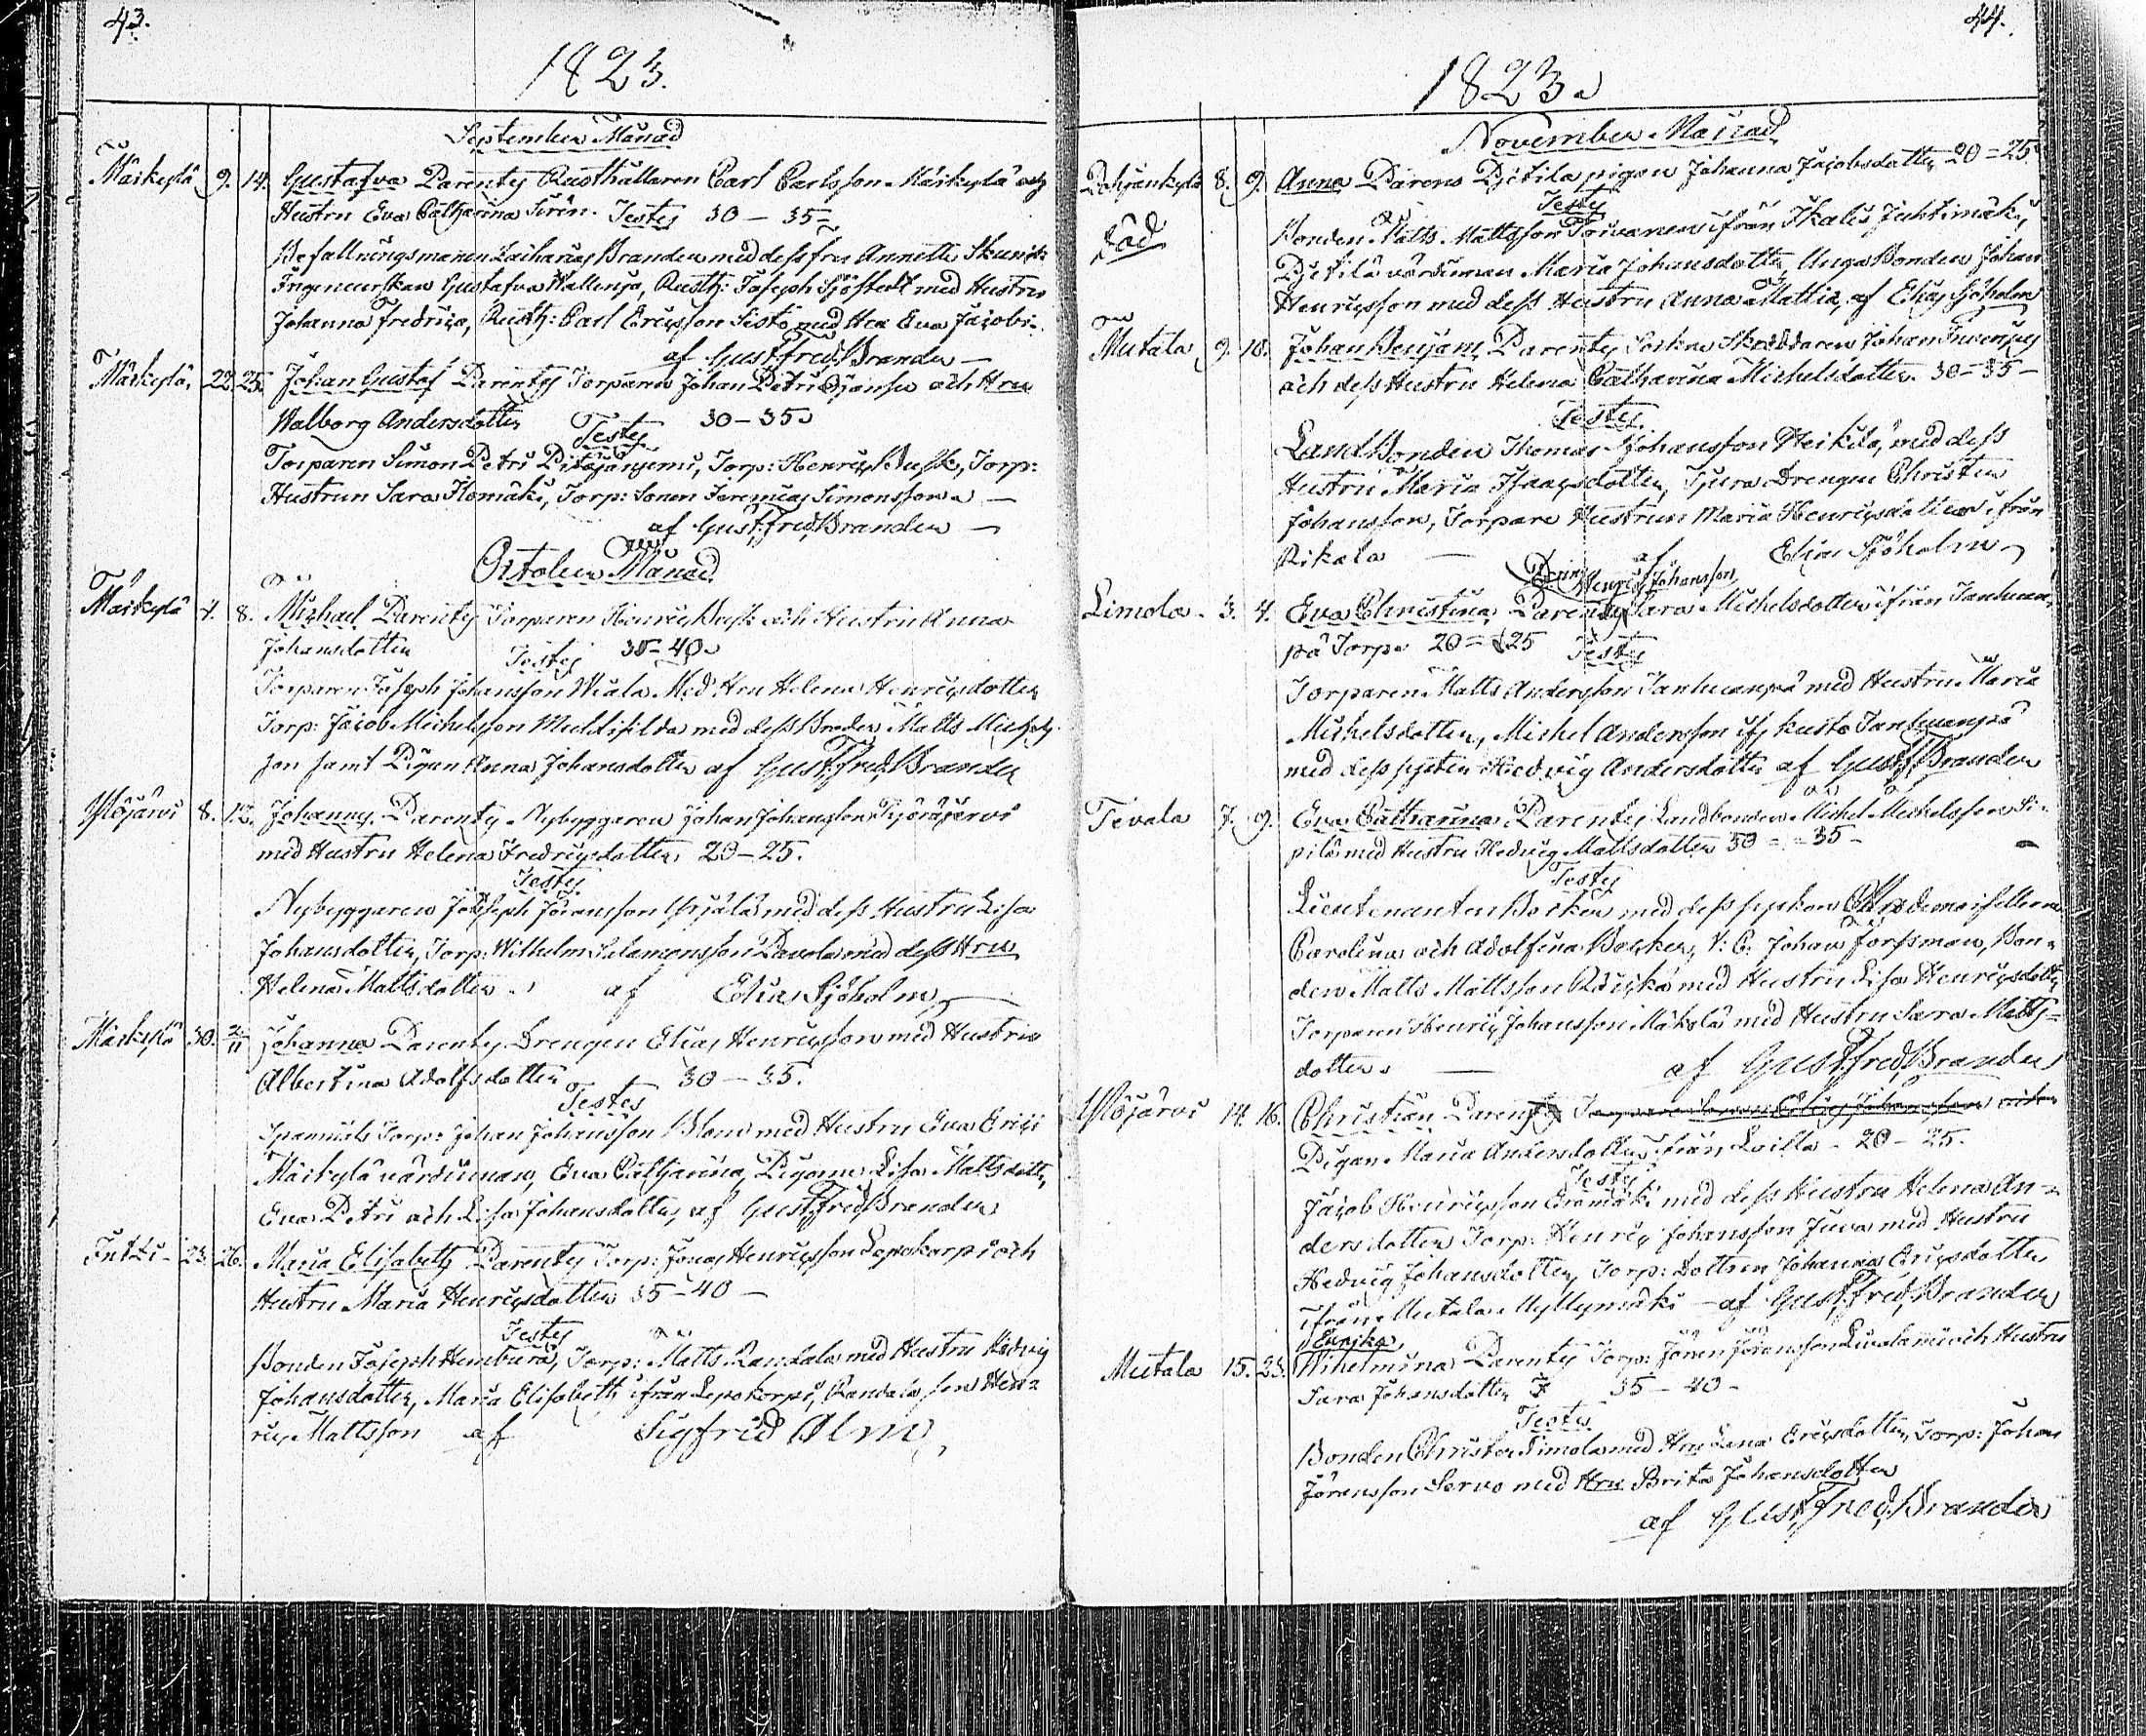 43.
1823.
September Månad
Märkylä 9. 14. Gustafva Parentes Rusthållaren Carl Carlsson Märkylä och
Hustru Eva Catharina Sirén. Testes 30 – 35
Befallningsmannen Zacharias Brander med dess fru Annette
Ingenieurskan Gustafva Wallensjö, Rusth: Joseph Sjöstedt med Hustru
Johanna Fredrica, Rusth: Carl Ericsson Sisto med Hru Eva Jacobi
af Gust. Fred. Brander –
Märkylä 22. 25. Johan Gustaf Parentes Torparen Johan Petri och Hru
Walborg Andersdotter 30 – 35
Testes
Torparen Simon Petri Torp: Henric Busk, Torp:
Hustrun Sara Ilomäki, Torp: Sonen Jeremias Simonsson –
af Gust. Fred. Brander –
October Månad
Märkylä 4. 8. Michael Parentes Torparen Henric Busk och Hustru Anna
Johansdotter Testes 35 – 40
Torparen Joseph Johansson Wiala Med Hru Helena Henricsdotter
Torp: Jacob Michelsson med dess Broder Matts Michels
son samt Pigan Anna Johansdotter af Gust. Fred. Brander
Ylöjärvi 8. 12. Johannes Parentes Nybyggaren Johan Johansson
med Hustru Helena Fredricsdotter 20 – 25.
Testes
Nybyggaren Joseph Johansson med dess Hustru Lisa
Johansdotter, Torp: Wilhelm Salomonsson Pavola med dess Hru
Helena Mattsdotter af Elias Sjöholm
Märkylä 30. 2/11 Johanna Parentes Drengen Elias Henricsson med Hustru
Albertina Adolfsdotter 30 – 35.
Testes
Torp: Johan Johansson Blom med Hustru Eva Erici
Märkylä värdinnan, Eva Catharina, Pigorne Lisa Mattsdotter,
Eva Petri och Lisa Johansdotter, af Gust. Fred. Brander
Intti 23. 26. Maria Elisabeth Parentes Torp: Jonas Henricsson Lepokorpi och
Hustru Maria Henricsdotter 35 – 40 –
Testes
Bonden Joseph Torp: Matts Randala med Hustru Hedvig
Johansdotter, Maria Elisabeth ifrån Lepokorpi, Randala son Hen=
ric Mattsson af Sigfrid Alm
44.
1823.
November Månad
Pohjankylä 8. 9. Anna Parens Pietilä pigan Johanna Jacobsdotter 20 = 25
Testes
Bonden Matts Mattsson Toivanen ifrån Ikalis Juhtimäki,
Pietilä värdinnan Maria Johansdotter, Unga Bonden Johan
Henricsson med dess Hustru Anna Mattia, af Elias Sjöholm
Mutala 9. 10. Johan Benjam. Parentes Sockne Skräddaren Johan
och dess Hustru Helena Catharina Michelsdotter. 30 – 35 –
Testes
Landbonden Thomas Johansson Heikilä, med dess
Hustru Maria Isaacsdotter, Drengen Christer
Johansson, Torpare Hustrun Maria Henricsdotter ifrån
Rikala – af Elias Sjöholm
Henric Johansson
Limola 3. 4. Eva Christina, Parentes Sara Michelsdotter ifrån Janhuan
pä Torp 20 = 25 Testes
Torparen Matts Andersson Janhuanpä med Hustru Maria
Michelsdotter, Michel Andersson Janhuanpä
med dess syster Hedvig Andersdotter af Gust. F. Brander
Tevala 7. 9. Eva Catharina Parentes Landbonden Michel Michelsson Si=
pilä med Hustru Hedvig Mattsdotter 30 = 35 –
Testes
Lieutenanten Bocker med dess syskon Mademoisellerne
Carolina och Adolfina Böcker, V: C. Johan Forssman, Bon=
den Matts Mattsson Räiskä med Hustru Lisa Henricsdotter
Torparen Henric Johansson Mäkelä med Hustru Sara Matts=
dotter. – af Gust. Fred. Brander
Ylöjärvi 14. 16. Christian Parens Torpare Sonen Elias Johansson och
Pigan Maria Andersdotter ifrån Lailla – 20 – 25.
Testes
Jacob Henricsson Eromäki med dess Hustru Helena An=
dersdotter Torp: Henric Johansson Juva med Hustru
Hedvig Johansdotter, Torp: Dottren Johanna Ericsdotter
ifrån Mutala Myllymäki – af Gust. Fred. Brander
Eurika
Mutala 15. 23. Wilhelmina Parentes Torp: Jören Jöransson och Hustru
Sara Johansdotter 35 – 40 –
Testes
Bonden Christer Simola med Hru Lena Ericsdotter, Torp: Johan
Jöransson Servo med Hru Brita Johansdotter
af Gust. Fred. Brander